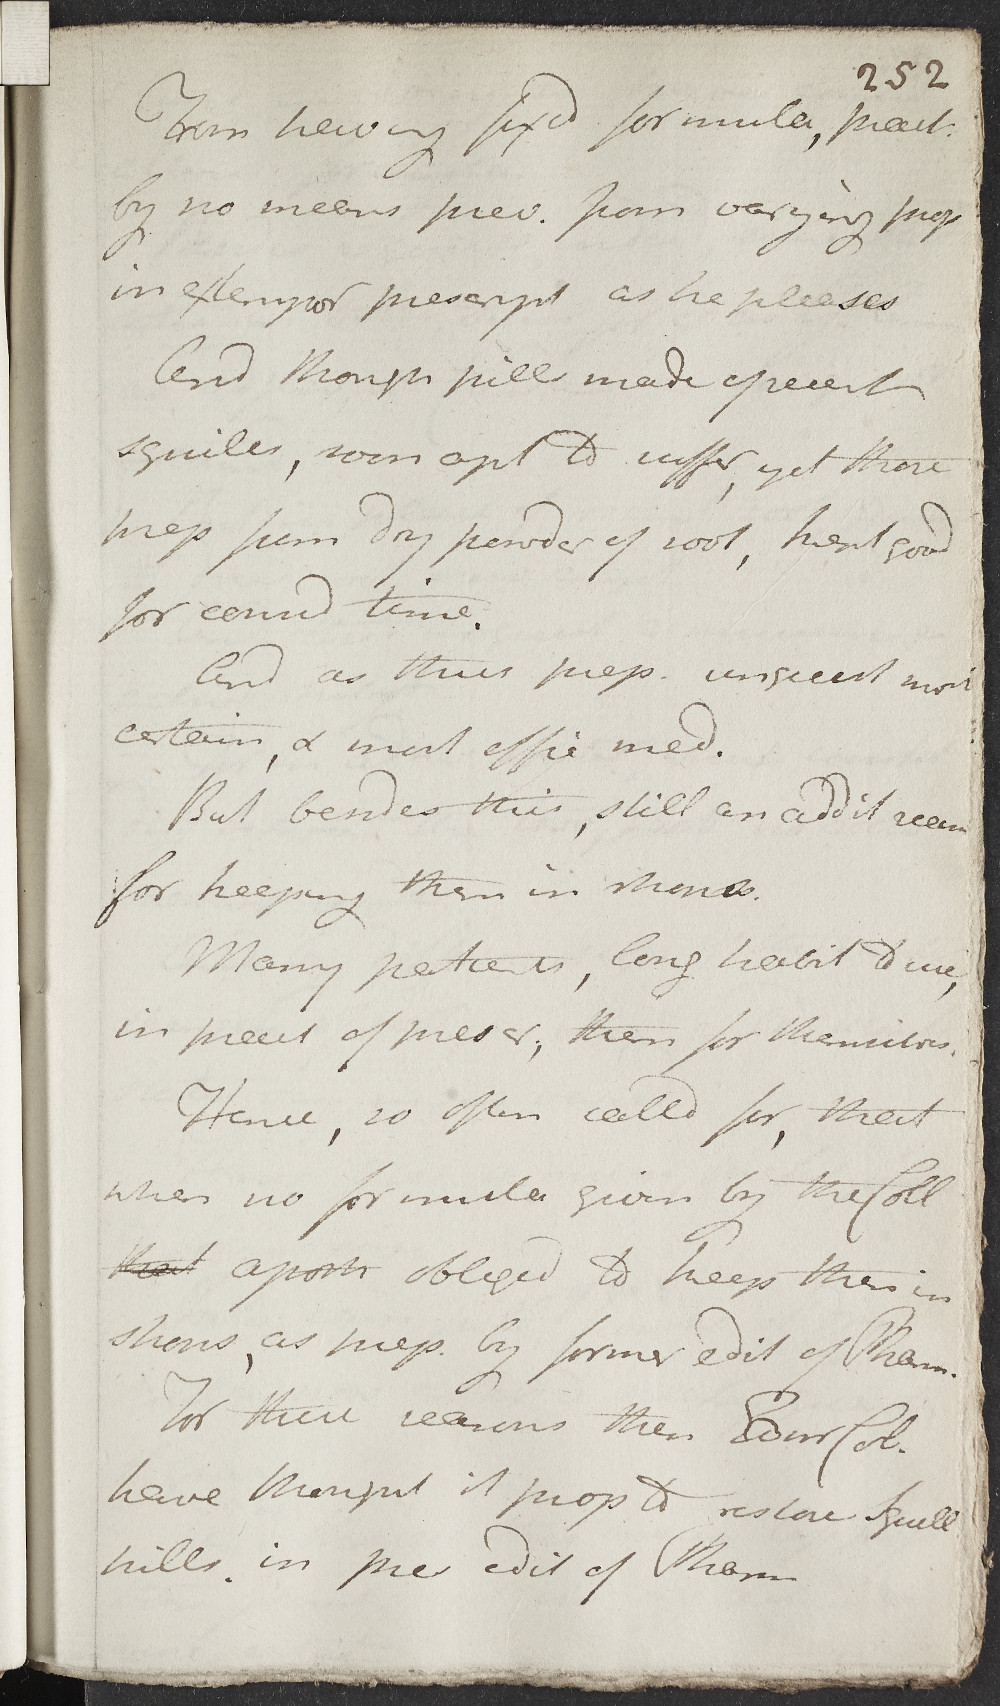 252
From having fixd formula, pract.
by no means prev. from varying prop
in extempor prescript as he pleases
And though pills made of recent
squiles, soon apt to suffer, yet those
prep from dry powder of root, kept good
for consid time.
And as thus prep. unquest most
certain, & most effic med.
But besides this, still an addit reason
for keeping them in shops.
Many patients, long habit to use,
in pract of prescr, them for themselves.
Hence, so often called for, that
when no formula given by the Coll
that apoth obliged to keep them in
shops, as prep. by former edit of Pharm.
For these reasons then Edinr Col.
have thought it prop to restore Squill
pills. in pres edit of Pharm